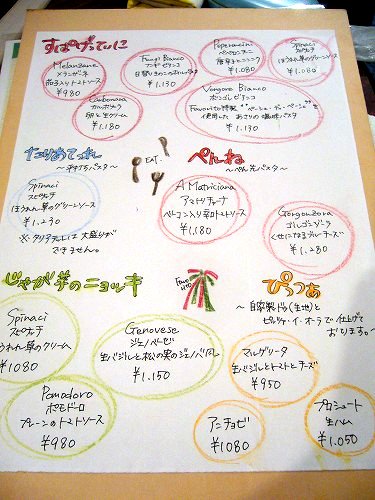 すぱげってぃに
Melanzane
メランザーネ
茄子入りトマトソース
¥980
Fungi Bianco
フンギ・ビアンコ
日替りきのこのオイルパスタ
¥1,130
Peperoncini
ペペロンチーニ
唐辛子とニンニク
¥1,080
Spinaci
スピナチ
ほうれん草のグリーンソース
¥1,080
Carbonara
カルボナーラ
卵と生クリーム
¥1,180
Vongore Bianco
ボンゴレビアンコ
使用した あさりの塩味パスタ
¥1,130
たりあてっれ
〜平打ちパスタ〜
EAT.
Spinaci
スピナチ
ほうれん草のグリーンソース
¥1,230
※タリアテッレは大盛りが
できません。
ぺんね
〜ペン先パスタ〜
A Matriciana
アマトリチャーナ
ベーコン入り辛口トマトソース
¥1,180
Gorgonzora
ゴルゴンゾーラ
くせになるブルーチーズ
¥1,280
じゃが芋のニョッキ
Spinaci
スピナチ
うれん草のクリーム
¥1080
Genovese
ジェノベーゼ
生バジルと松の実のジェノバ風
¥1,150
Pomodoro
ポモドーロ
プレーンのトマトソース
¥980
ぴっつぁ
〜自家製ドゥ(生地)と
ピッツァ・イ・オーラで仕上げて
おります。〜
マルゲリータ
生バジルとトマトとチーズ
¥950
アンチョビ
¥1080
プロシュート
生ハム
¥1,050